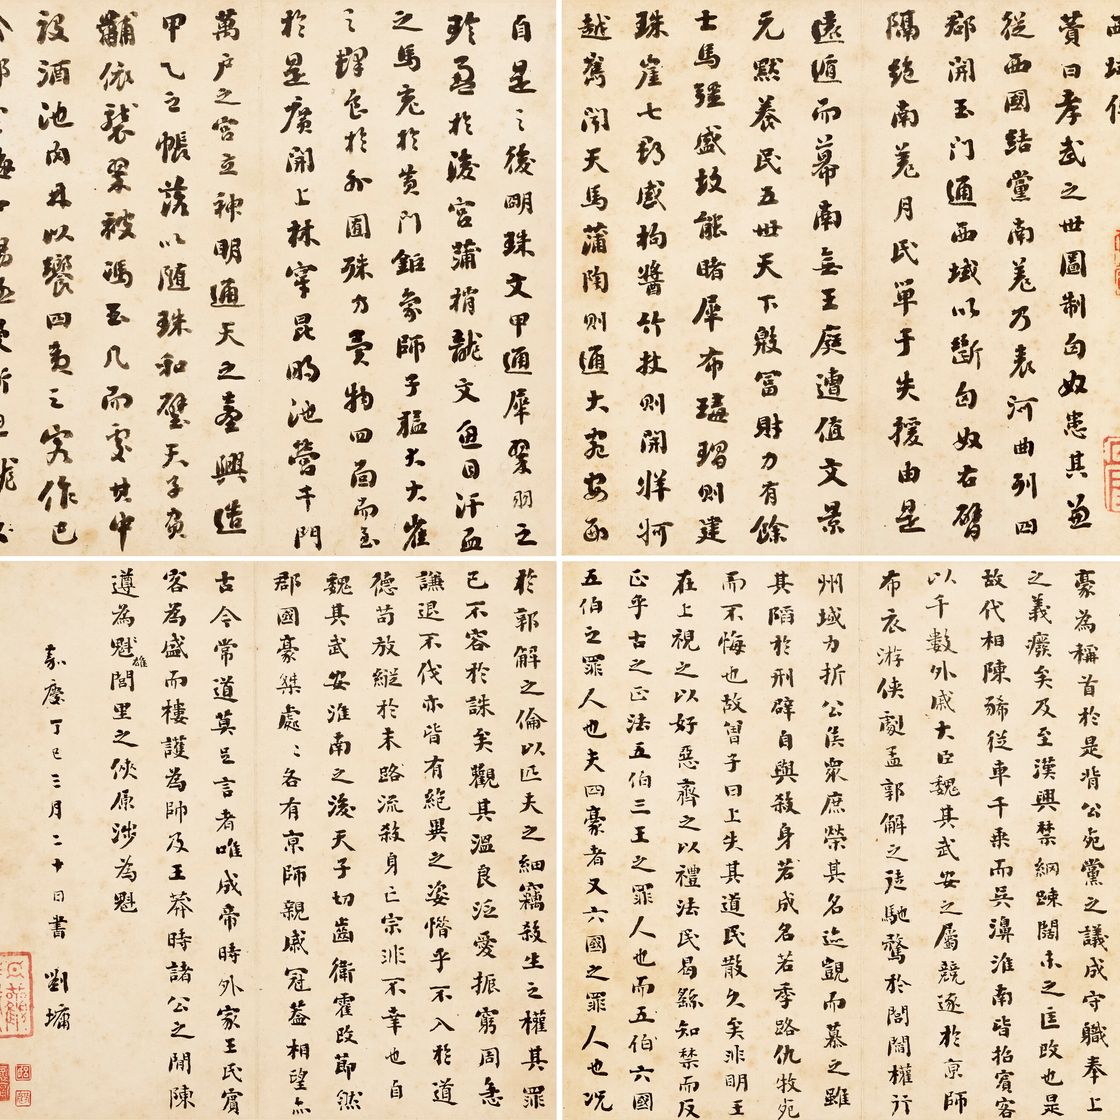 西域傳
贊曰孝武之世圖制匈奴患其兼
從西國結黨南羌乃表河曲列四
郡開玉門通西域以斷匈奴右臂
隔絕南羌月氏單于失援由是
遠遁而幕南無王庭遭值文景
元默養民五世天下殷富財力有餘
士馬彊盛故能睹犀布瑇瑁則建
珠崖七郡感枸醬竹杖則開牂柯
越嶲聞天馬蒲陶則通大宛安息
自是之後明珠文甲通犀翠羽之
珍盈於後宮蒲梢龍文魚目汗血
之馬充於黃門鉅象師子猛犬大雀
之群食於外囿殊方異物四面而至
於是廣開上林穿昆明池營千門
萬戶之宮立神明通天之臺興造
甲乙之帳落以隨珠和璧天子負
黼依襲翠被馮玉几而處其中
設酒池肉林以饗四夷之客作巴
都盧海中碭極漫衍魚龍
豪為稱首於是背公死黨之議成守職奉上
之義廢矣及至漢興禁網疎闊未之匡改也是
故代相陳豨從車千乘而吳濞淮南皆招賓客
以千數外戚大臣魏其武安之屬競逐於京師
布衣游俠劇孟郭解之徒馳騖於閭閻權行
州域力折公侯眾庶榮其名迹覬而慕之雖
其陷於刑辟自與殺身若成名若季路仇牧死
而不悔也故曾子曰上失其道民散久矣非明王
在上視之以好惡齊之以禮法民曷繇知禁而反
正乎古之正法五伯三王之罪人也而五伯六國
五伯之罪人也夫四豪者又六國之罪人也況
於郭解之倫以匹夫之細竊殺生之權其罪
已不容於誅矣觀其溫良泛愛振窮周急
謙退不伐亦皆有絕異之姿惜乎不入於道
德苟放縱於末路流殺身亡宗非不幸也自
魏其武安淮南之後天子切齒衛霍改節然
郡國豪桀處處各有京師親戚冠蓋相望亦
古今常道莫足言者唯成帝時外家王氏賓
客為盛而樓護為帥及王莽時諸公之間陳
遵為雄閭里之俠原涉為魁
嘉慶丁巳三月二十日書
劉墉